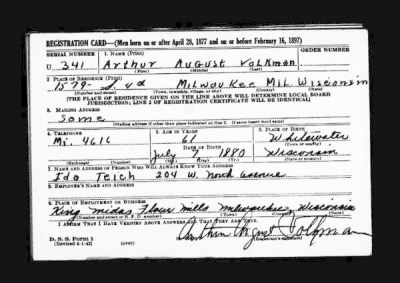 REGISTRATION CARD—(Men born on or after April 28, 1877 and on or before February 16, 1897)
SERIAL NUMBER 1. NAME (Print) ORDER NUMBER
U 341 Arthur August Volkman
(First) (Middle) (Last)
2. PLACE OF RESIDENCE (Print)
1579 Milwaukee Mil. Wisconsin
(Number and street) (Town, township, village, or city) (County) (State)
[THE PLACE OF RESIDENCE GIVEN ON THE LINE ABOVE WILL DETERMINE LOCAL BOARD
JURISDICTION; LINE 2 OF REGISTRATION CERTIFICATE WILL BE IDENTICAL]
3. MAILING ADDRESS
Same
(Mailing address if other than place indicated on line 2. If same insert word same)
4. TELEPHONE 5. AGE IN YEARS 6. PLACE OF BIRTH
Mi. 4616 61 Whitewater
DATE OF BIRTH (Town or county)
July 1880 Wisconsin
(Exchange) (Number) (Mo.) (Day) (Yr.) (State or country)
7. NAME AND ADDRESS OF PERSON WHO WILL ALWAYS KNOW YOUR ADDRESS
Ida Teich 204 W. North Avenue
8. EMPLOYER'S NAME AND ADDRESS
9. PLACE OF EMPLOYMENT OR BUSINESS
King Midas Flour Mills Milwaukee, Wisconsin
(Number and street or R. F. D. number) (Town) (County) (State)
I AFFIRM THAT I HAVE VERIFIED ABOVE ANSWERS AND THAT THEY ARE TRUE.
D. S. S. Form 1
(Revised 4-1-42) (over)
Arthur August Volkman
(Registrant's signature)